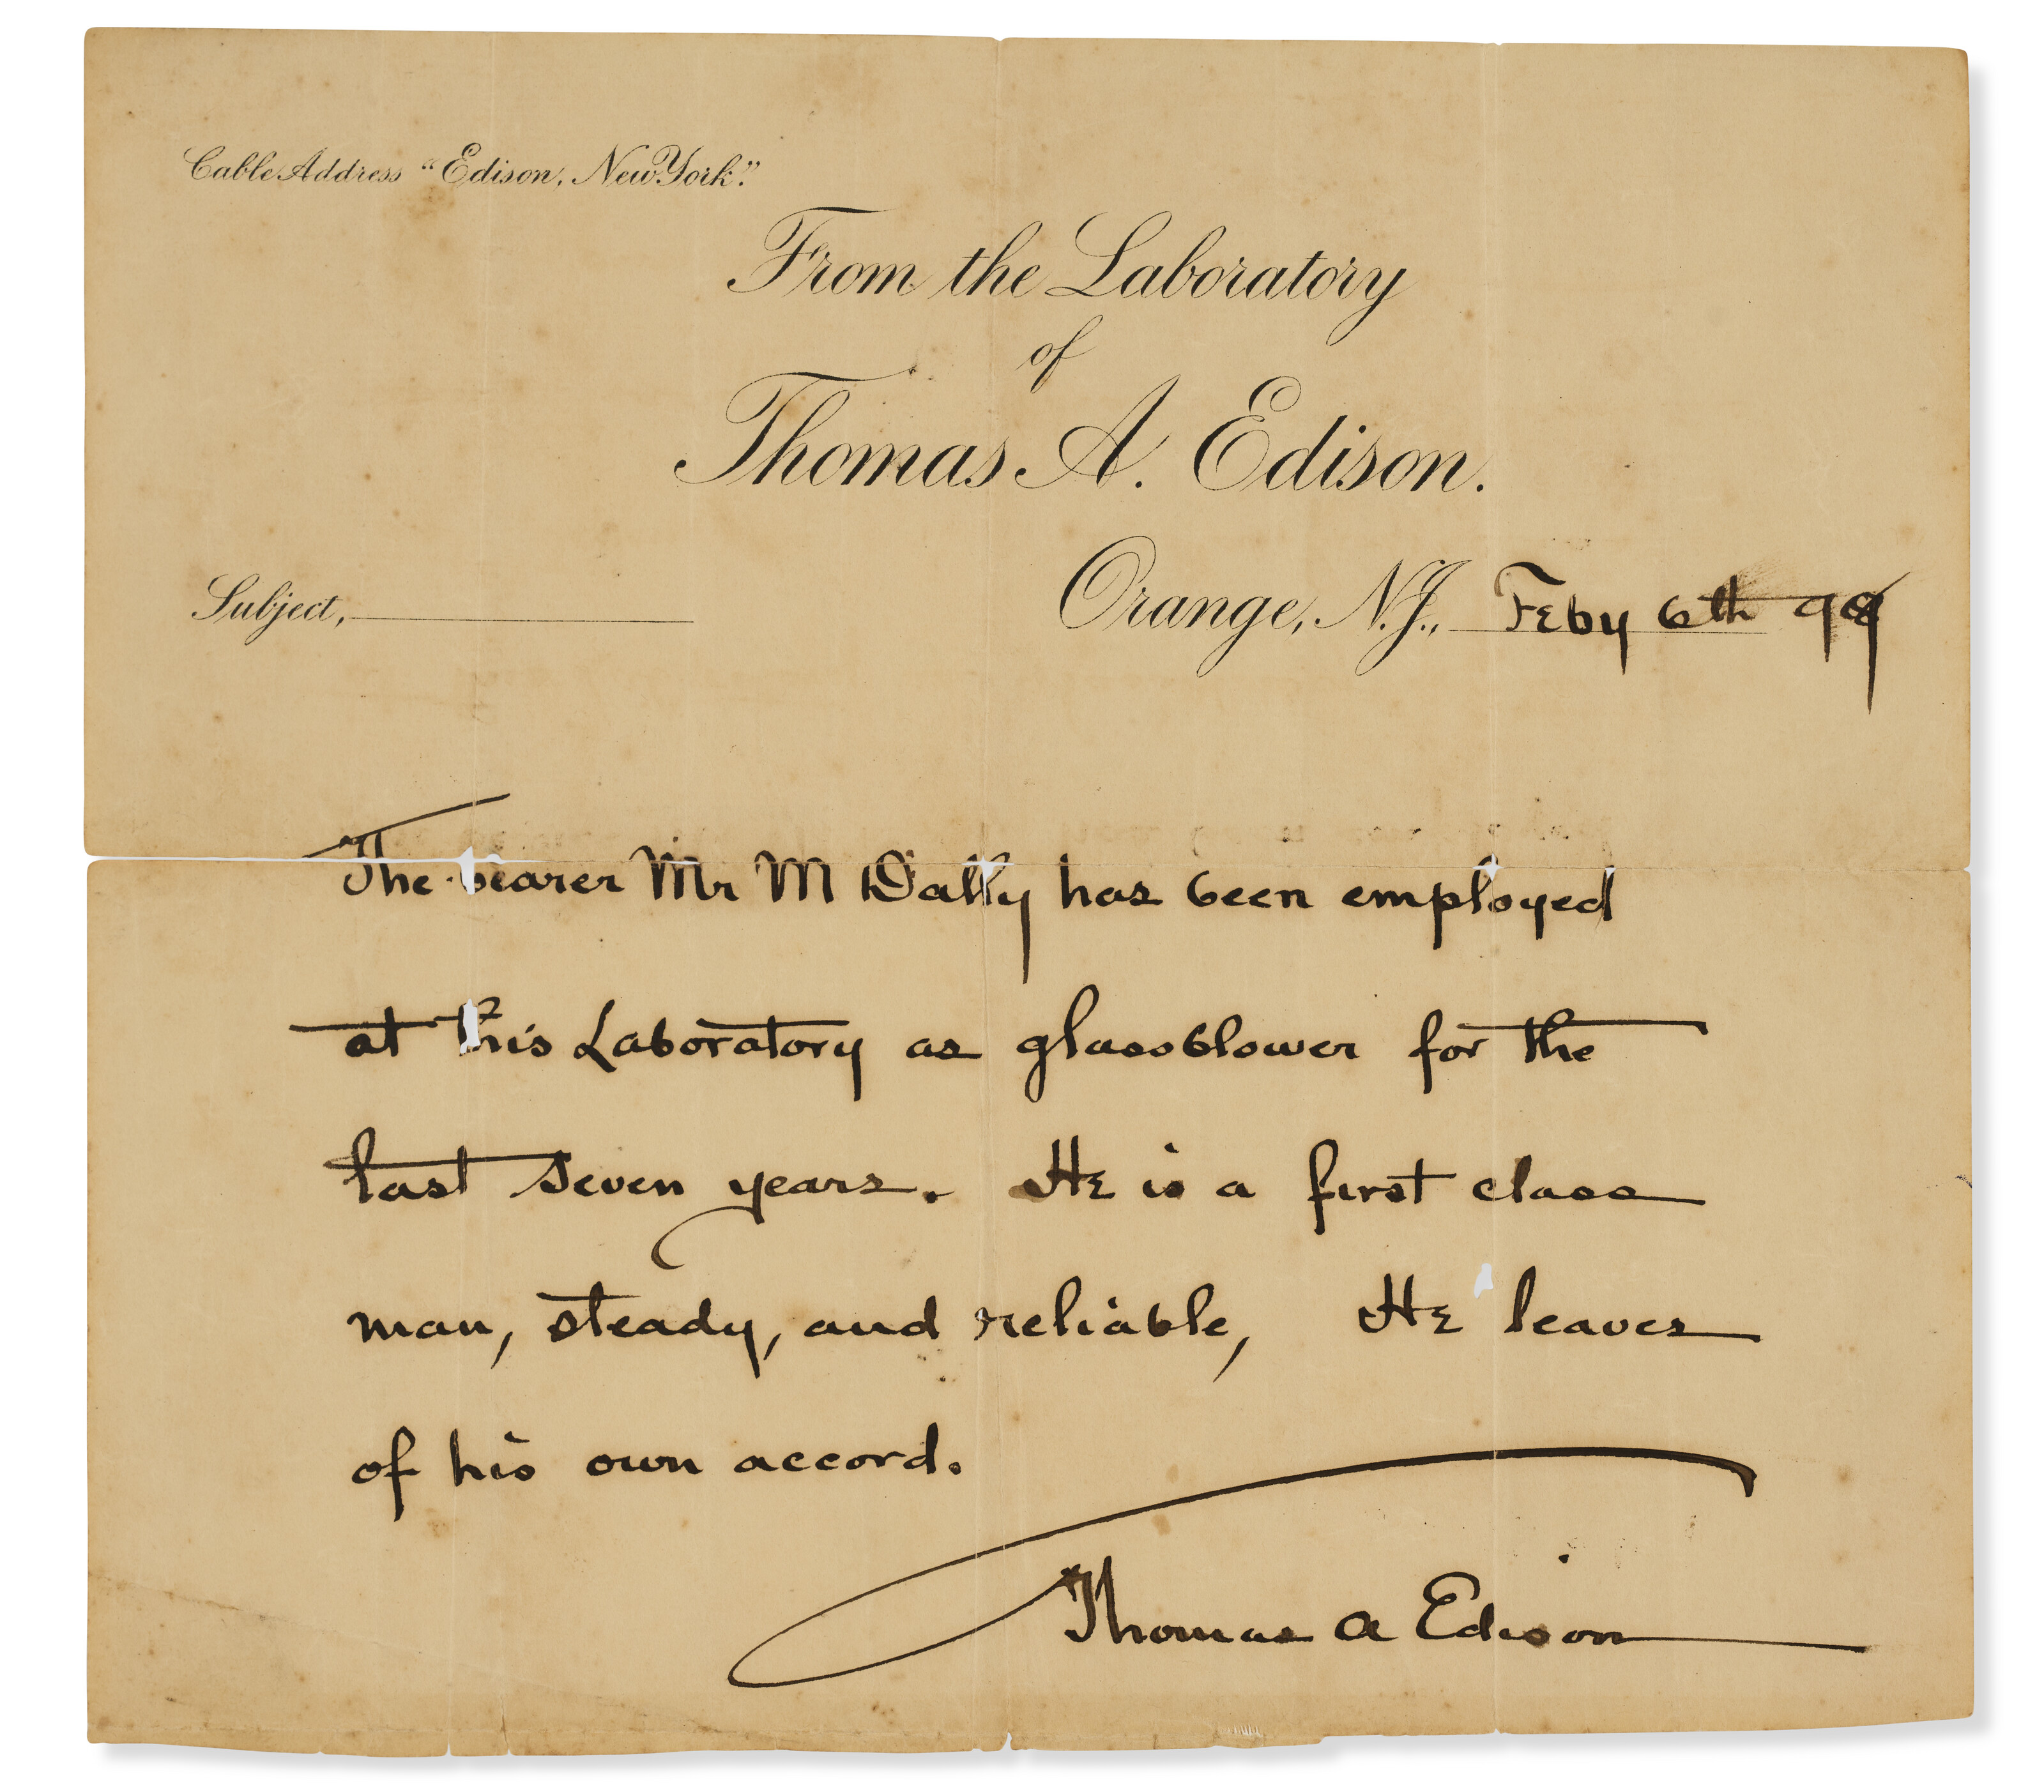 Cable Address "Edison, New York."
From the Laboratory
of
Thomas A. Edison.
Subject,
Orange, N.J., Feby 6th 99
The bearer Mr M Dally has been employed
at this Laboratory as glassblower for the
last seven years. He is a first class
man, steady, and reliable, He leaves
of his own accord.
Thomas A Edison